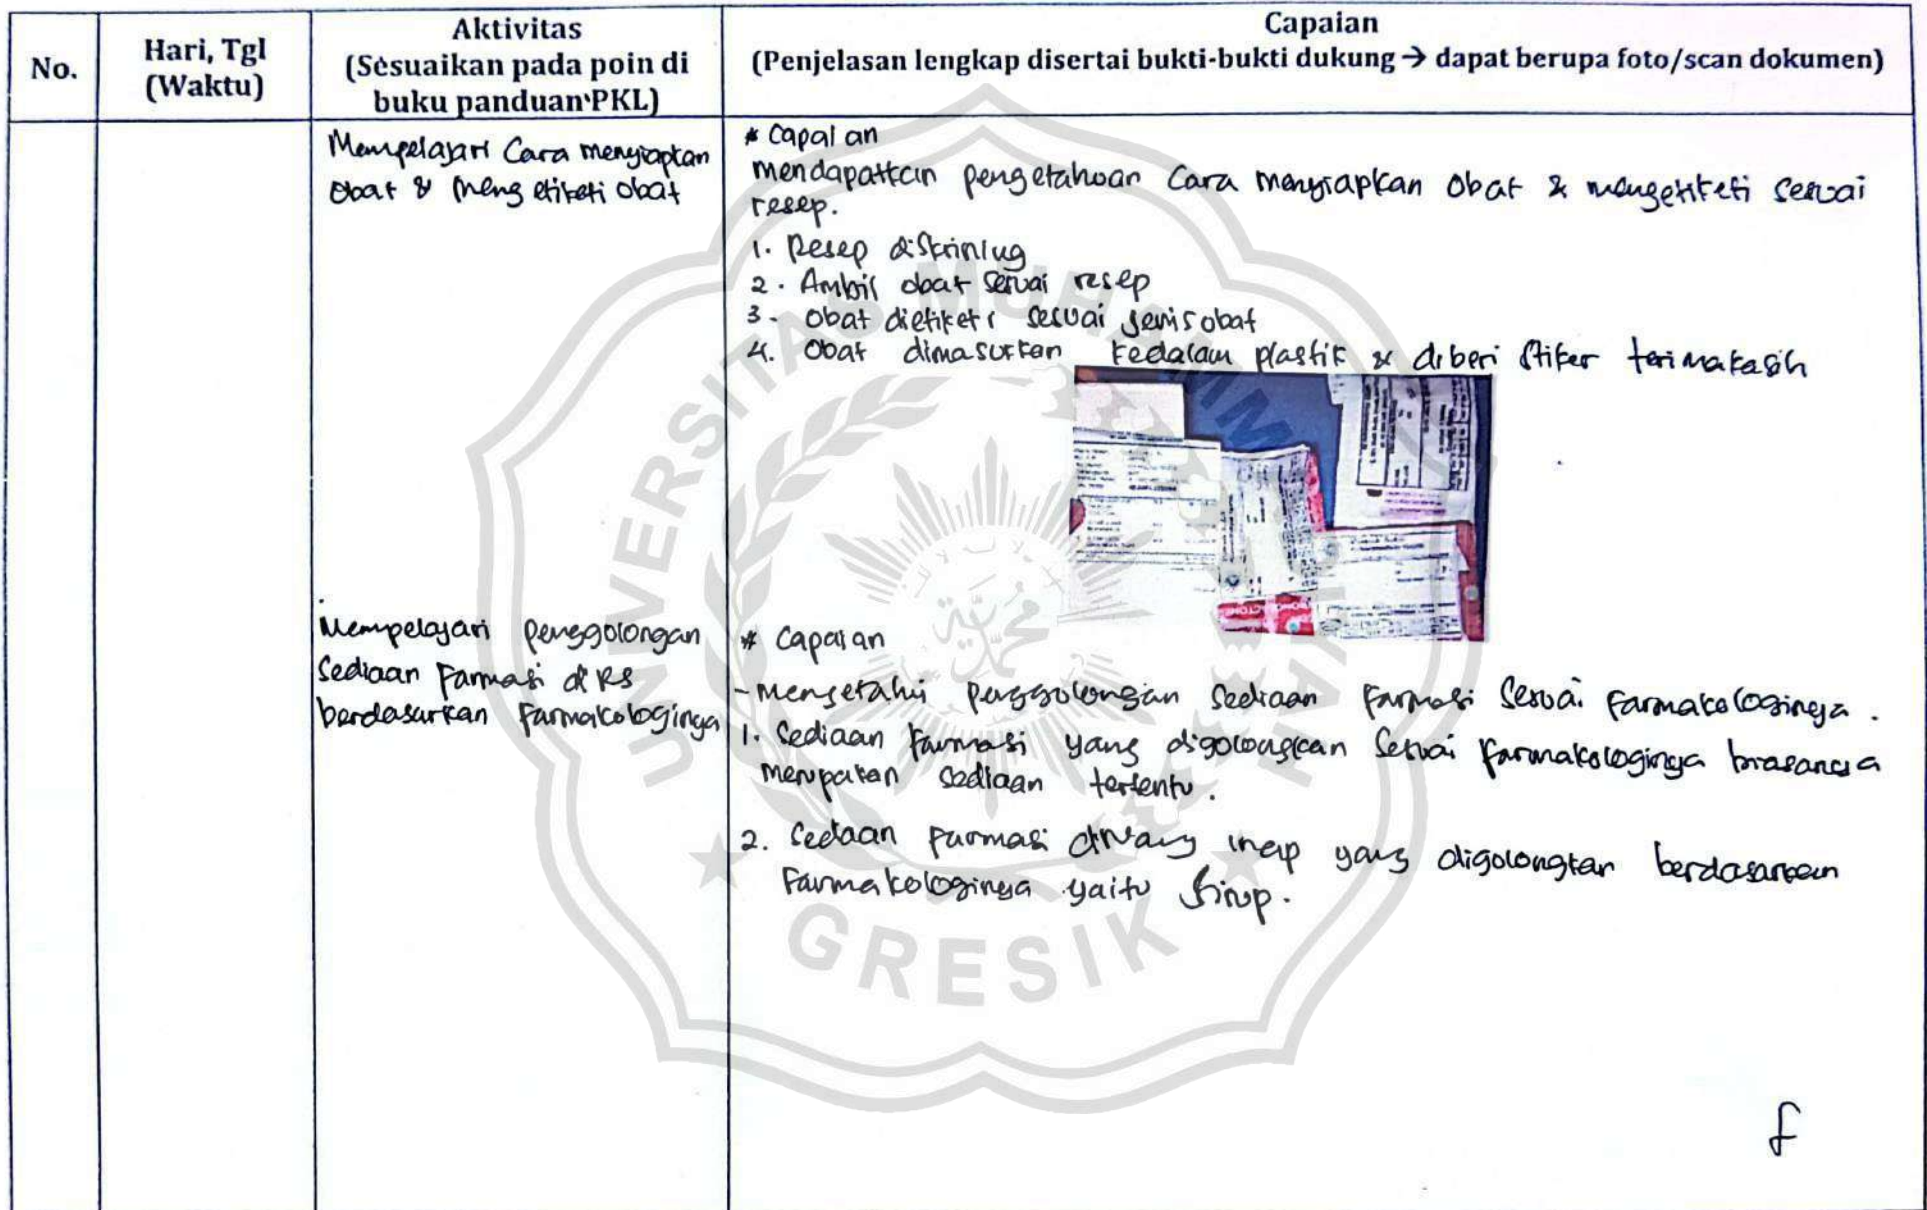 No.
Hari, Tgl
(Waktu)
Aktivitas
(Sesuaikan pada poin di
buku panduan PKL)
Capaian
(Penjelasan lengkap disertai bukti-bukti dukung → dapat berupa foto/scan dokumen)
Mempelajari Cara menyiapkan
Obat & meng etiketi obat
* Capaian
mendapatkan pengetahuan Cara menyiapkan Obat & mengetiketi sesuai
resep.
1. Resep diskrining
2. Ambil obat sesuai resep
3. obat dietiketi sesuai jenis obat
4. Obat dimasukkan kedalam plastik & diberi stiker terimakasih
Mempelajari penggolongan
Sediaan Farmasi di RS
berdasarkan farmakologinya
* Capaian
- mengetahui penggolongan Sediaan Farmasi Sesuai Farmakologinya.
1. Sediaan Farmasi yang digolongkan Sesuai farmakologinya biasanya
merupakan sediaan tertentu.
2. Sediaan Farmasi inap yang digolongkan berdasarkan
Farmakologinya yaitu Sirup.
UNIVERSITAS MUHAMMADIYAH
GRESIK